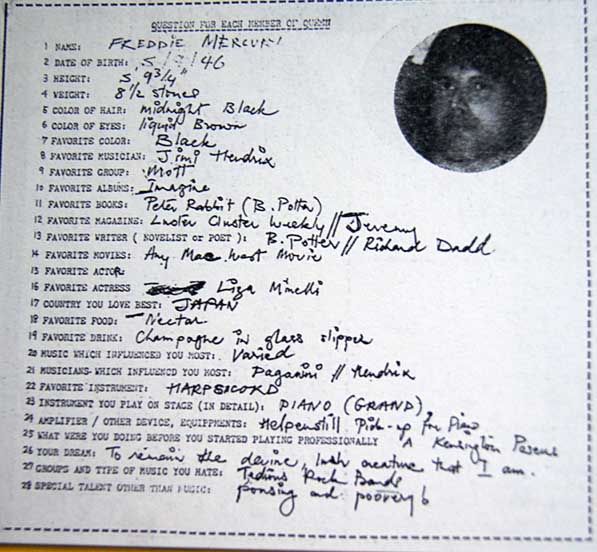 QUESTION FOR EACH MEMBER OF QUEEN
1 NAME: FREDDIE MERCURY
2 DATE OF BIRTH: 5/9/46
3 HEIGHT: 5, 9 3/4"
4 WEIGHT: 8 1/2 stones
5 COLOR OF HAIR: midnight Black
6 COLOR OF EYES: liquid Brown
7 FAVORITE COLOR: Black
8 FAVORITE MUSICIAN: Jimi Hendrix
9 FAVORITE GROUP: Mott
10 FAVORITE ALBUMS: Imagine
11 FAVORITE BOOKS: Peter Rabbit (B. Potter)
12 FAVORITE MAGAZINE: Cluster Weekly // Jeremy
13 FAVORITE WRITER ( NOVELIST or POET ): B. Potter // Richard Dadd
14 FAVORITE MOVIES: Any Mae West Movie
15 FAVORITE ACTOR:
16 FAVORITE ACTRESS Liza Minelli
17 COUNTRY YOU LOVE BEST: JAPAN
18 FAVORITE FOOD: Nectar
19 FAVORITE DRINK: Champagne in glass slipper
20 MUSIC WHICH INFLUENCED YOU MOST: Varied
21 MUSICIANS WHICH INFLUENCD YOU MOST: Paganini // Hendrix
22 FAVORITE INSTRUMENT: HARPSICORD
23 INSTRUMENT YOU PLAY ON STAGE (IN DETAIL): PIANO (GRAND)
24 AMPLIFIER / OTHER DEVICE, EQUIPPMENTS: Helpenstill Pick-up for Piano
25 WHAT WERE YOU DOING BEFORE YOU STARTED PLAYING PROFESSIONALLY A Kensington Poseur
26 YOUR DREAM: To remain the devine, lush creature that I am.
27 GROUPS AND TYPE OF MUSIC YOU HATE: Tedious Rock Bands
28 SPECIAL TALENT OTHER THAN MUSIC: ponsing and poovery